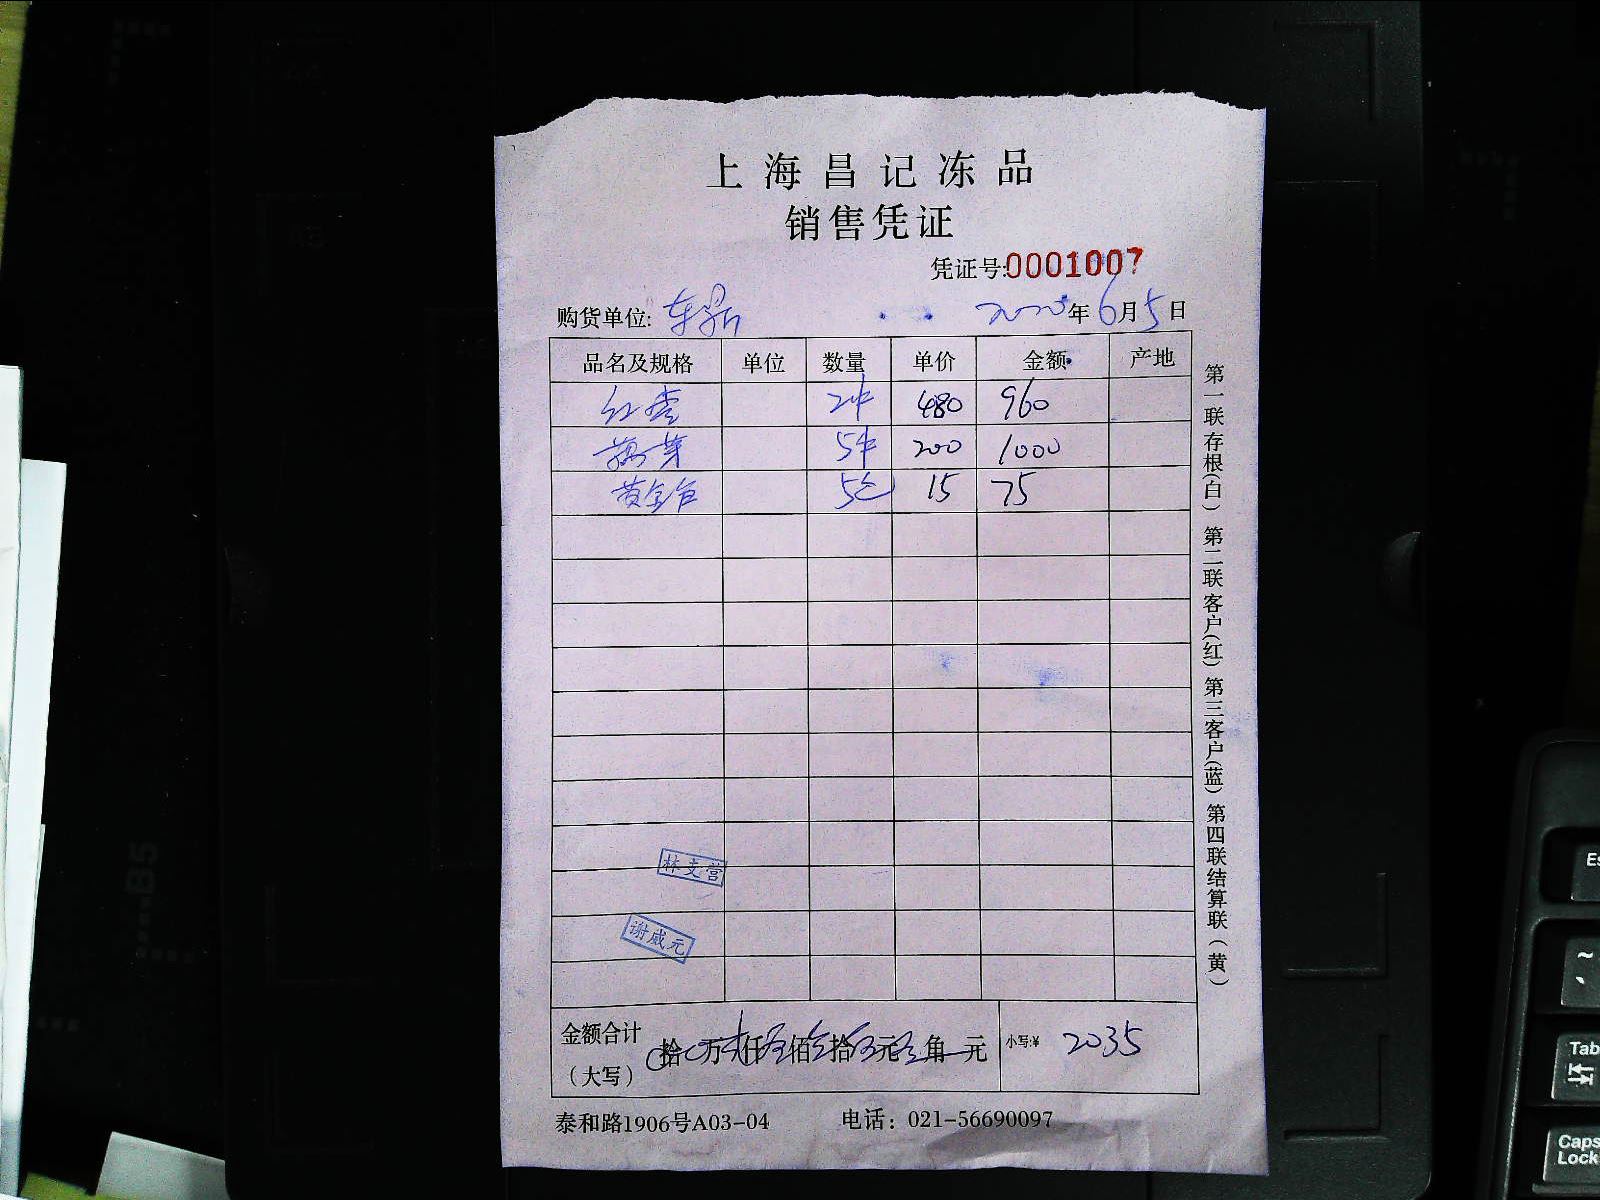 上海昌记冻品
销售凭证
凭证号:0001007
购货单位: 年6月5日
品名及规格 单位 数量 单价 金额 产地
2件 480 960
5件 200 1000
5包 15 75
林支营
谢威元
金额合计 拾 万 仟 佰 拾 元 角 元 小写:¥ 2035
（大写）
泰和路1906号A03-04 电话：021-56690097
第一联存根(白) 第二联客户(红) 第三客户(蓝) 第四联结算联(黄)
B5
Es
~
Tab
Caps
Lock